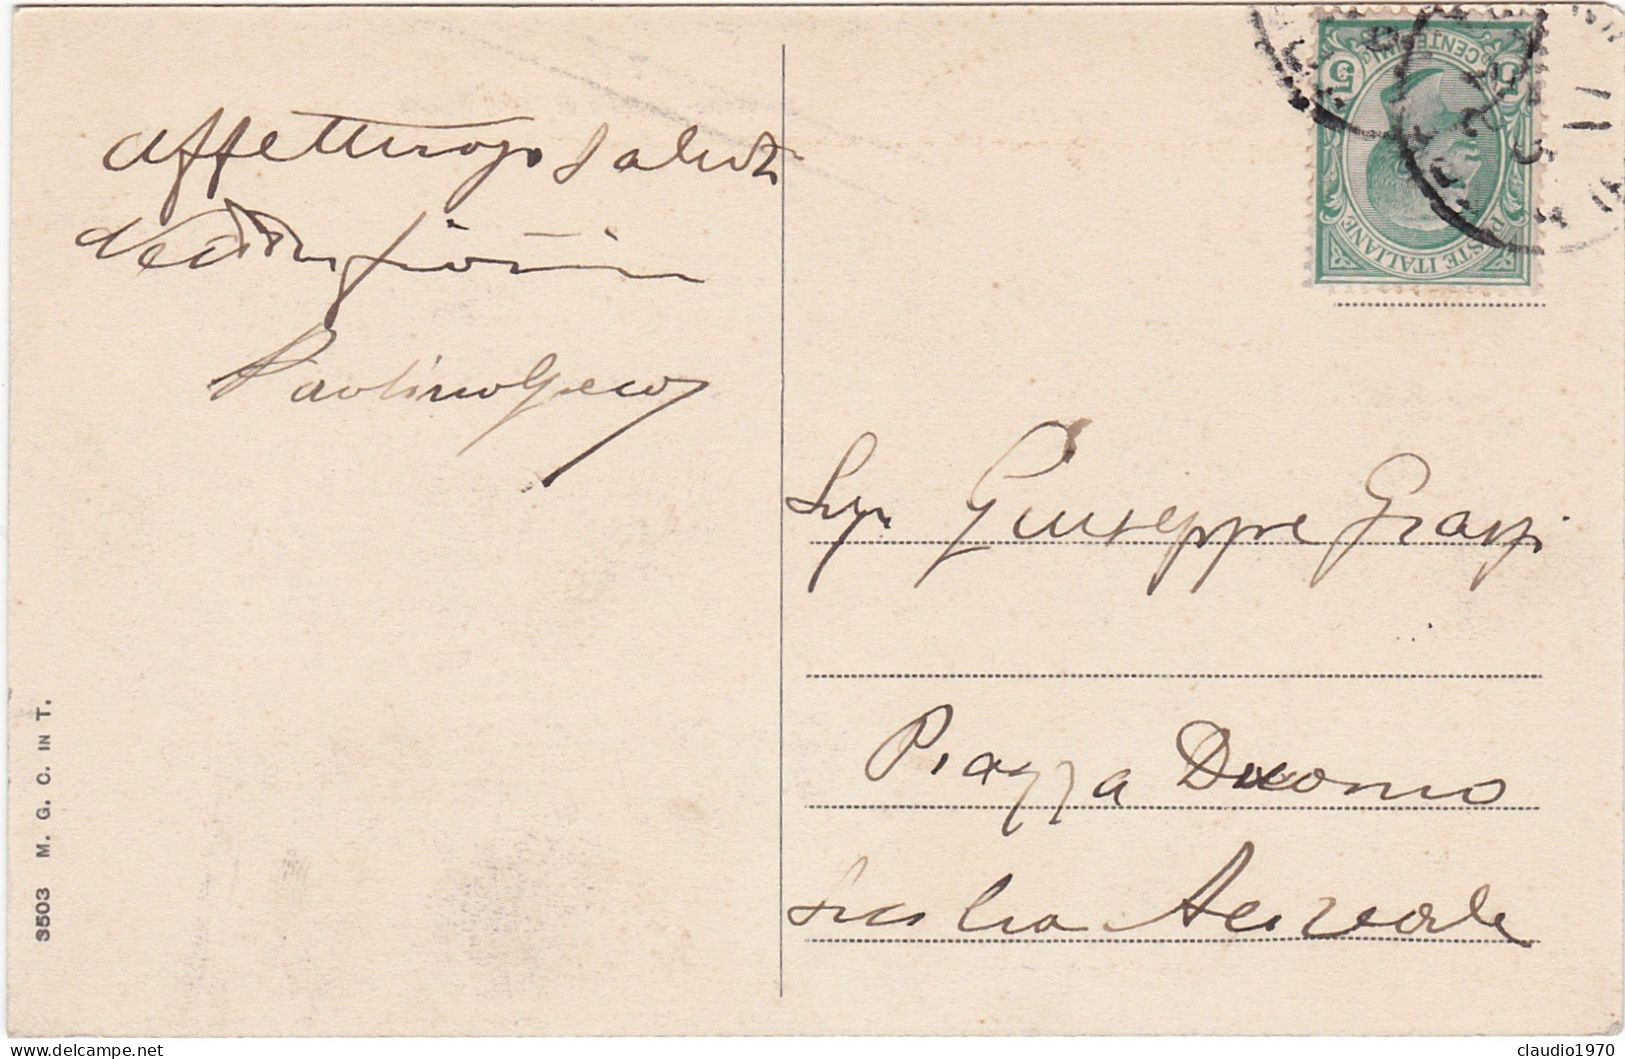 Affettuosi saluti
Paolino Greco
Sig. Giuseppe Grassi
Piazza Duomo
Sicilia Acireale
POSTE ITALIANE
CENTESIMI
5 5
11
3503 M. G. C. IN T.
delcampe.net
claudio1970